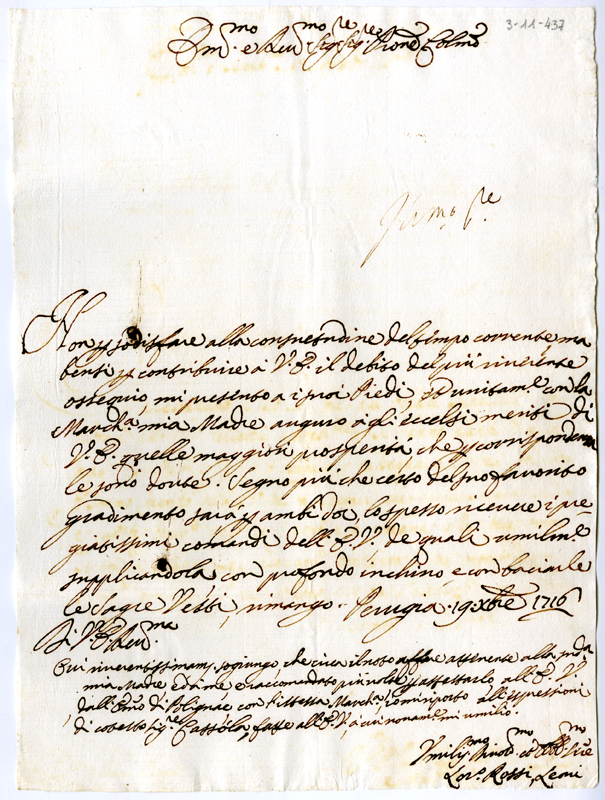 3-11-437
Em.mo e Reu.mo Sig.re Sig.re Pione Colmo
Non p sodisfare alla consuetudine del tempo corrente, ma
bensi p contribuire à V.E. il debito del più riuerente
ossequio, mi presento a i suoi Piedi, et unitam.e con la
March.a mia Madre auguro à gli eccelsi meriti di
V.E. quelle maggiori prosperità, che p corrispondenza
le sono douute. Segno più che certo del suo fauorito
gradimento sarà p ambi doi, lo spesso riceuere i pre-
giatissimi comandi dell'E.V. de quali umilm.e
supplicandola con profondo inchino, e con baciarle
le Sagre Vesti, rimango. Perugia 19 Xbre 1716
Di V.E. Reu.ma
Qui riuerentissimam.e sogiungo che circa il noto affare attenente alla sud.a
mia Madre
dall'Em.o di Polignac con l'istessa March.a, e mi riporto all'espressioni
di cotesto Sig.re Cassola, fatte all'E.V., à cui nouam.e mi umilio.
Umiliss.mo Diuot.mo et Obb.mo Sre
Lor.o Rossi Leoni